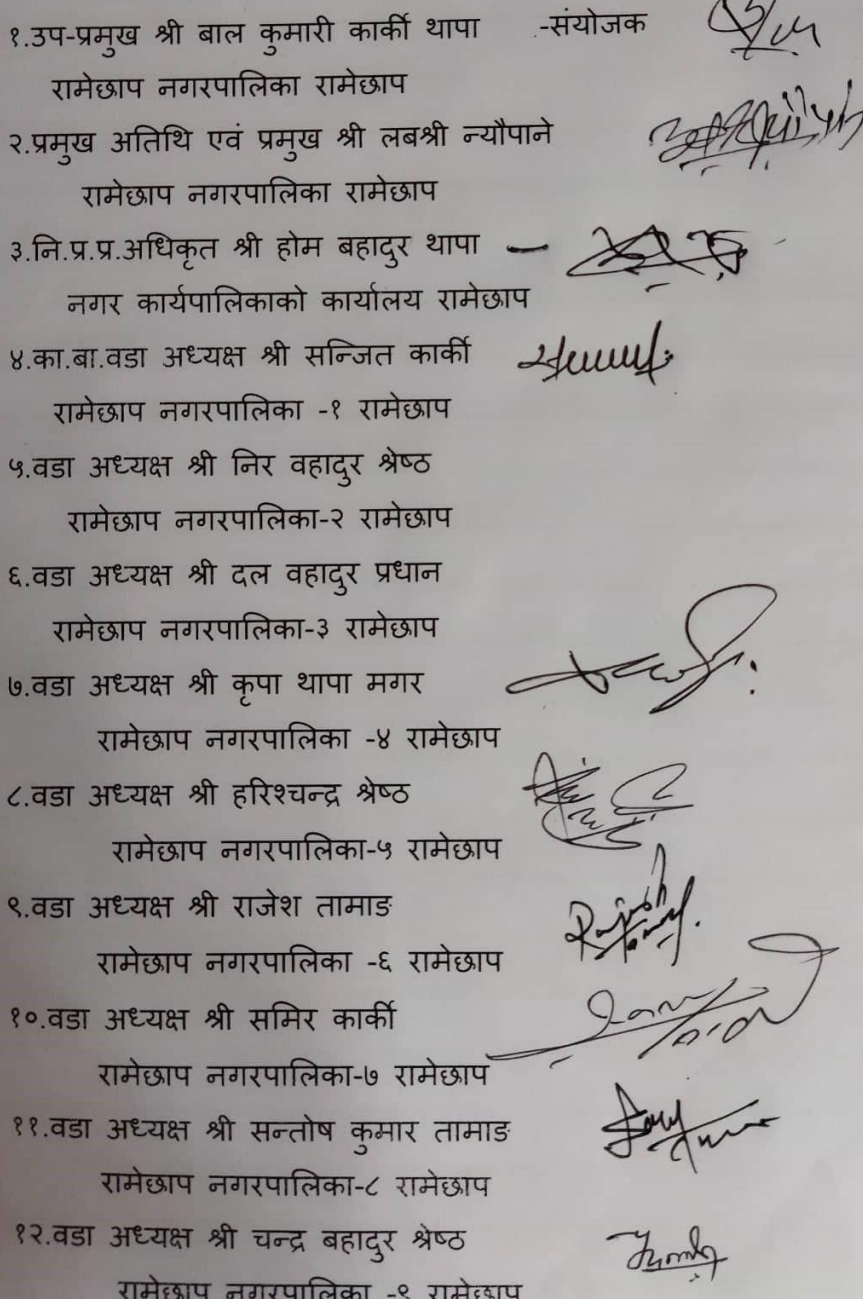 १.उप-प्रमुख श्री बाल कुमारी कार्की थापा -संयोजक
रामेछाप नगरपालिका रामेछाप
२.प्रमुख अतिथि एवं प्रमुख श्री लबश्री न्यौपाने
रामेछाप नगरपालिका रामेछाप
३.नि.प्र.प्र.अधिकृत श्री होम बहादुर थापा -
नगर कार्यपालिकाको कार्यालय रामेछाप
४.का.बा.वडा अध्यक्ष श्री सन्जित कार्की
रामेछाप नगरपालिका -१ रामेछाप
५.वडा अध्यक्ष श्री निर वहादुर श्रेष्ठ
रामेछाप नगरपालिका-२ रामेछाप
६.वडा अध्यक्ष श्री दल वहादुर प्रधान
रामेछाप नगरपालिका-३ रामेछाप
७.वडा अध्यक्ष श्री कृपा थापा मगर
रामेछाप नगरपालिका -४ रामेछाप
८.वडा अध्यक्ष श्री हरिश्चन्द्र श्रेष्ठ
रामेछाप नगरपालिका-५ रामेछाप
९.वडा अध्यक्ष श्री राजेश तामाङ
रामेछाप नगरपालिका -६ रामेछाप
१०.वडा अध्यक्ष श्री समिर कार्की
रामेछाप नगरपालिका-७ रामेछाप
११.वडा अध्यक्ष श्री सन्तोष कुमार तामाङ
रामेछाप नगरपालिका-८ रामेछाप
१२.वडा अध्यक्ष श्री चन्द्र बहादुर श्रेष्ठ
रामेछाप नगरपालिका -९ रामेछाप